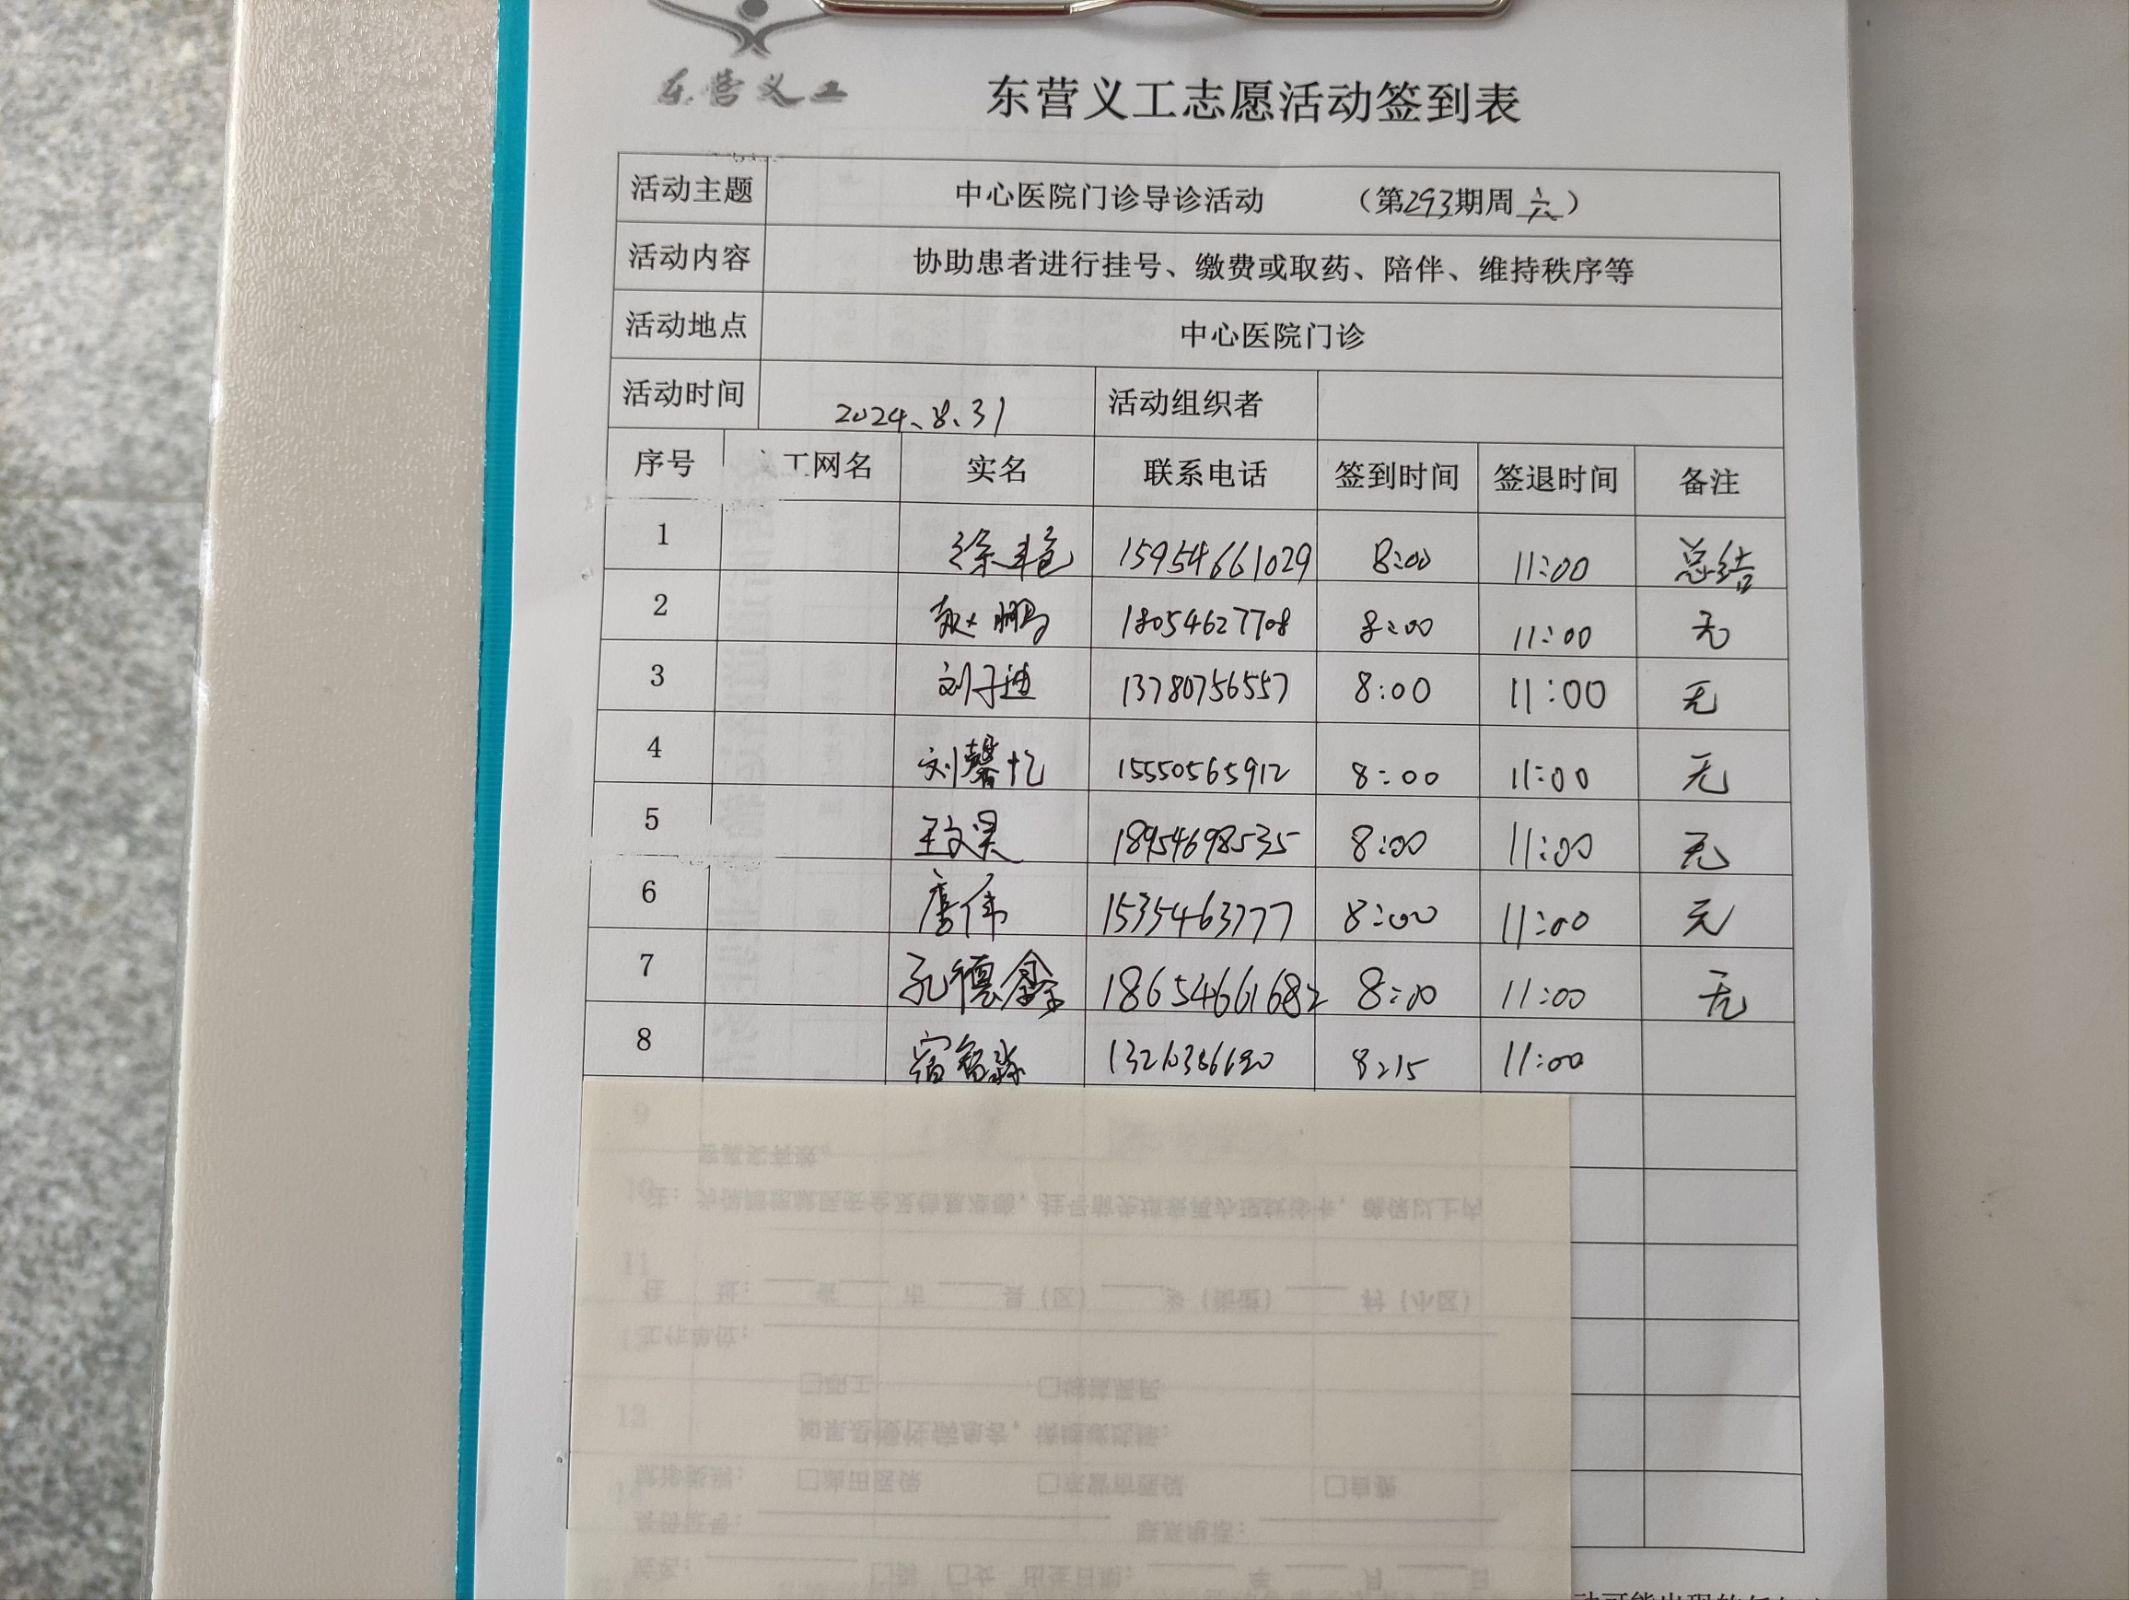 东营义工
东营义工志愿活动签到表
活动主题 中心医院门诊导诊活动 （第293期周六）
活动内容 协助患者进行挂号、缴费或取药、陪伴、维持秩序等
活动地点 中心医院门诊
活动时间 2024.8.31 活动组织者
序号 工网名 实名 联系电话 签到时间 签退时间 备注
1 徐艳 15954661029 8:00 11:00 总结
2 赵鹏 18054627708 8:00 11:00 无
3 刘子迪 13780756557 8:00 11:00 无
4 刘馨忆 15550565912 8:00 11:00 无
5 王文昊 18954698535 8:00 11:00 无
6 唐伟 1535463777 8:00 11:00 无
7 孔德鑫 18654661682 8:00 11:00 无
8 宿 8:15 11:00
9
10
11
13